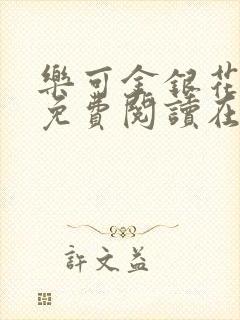 樂可金銀花
免費閱讀在
許文益